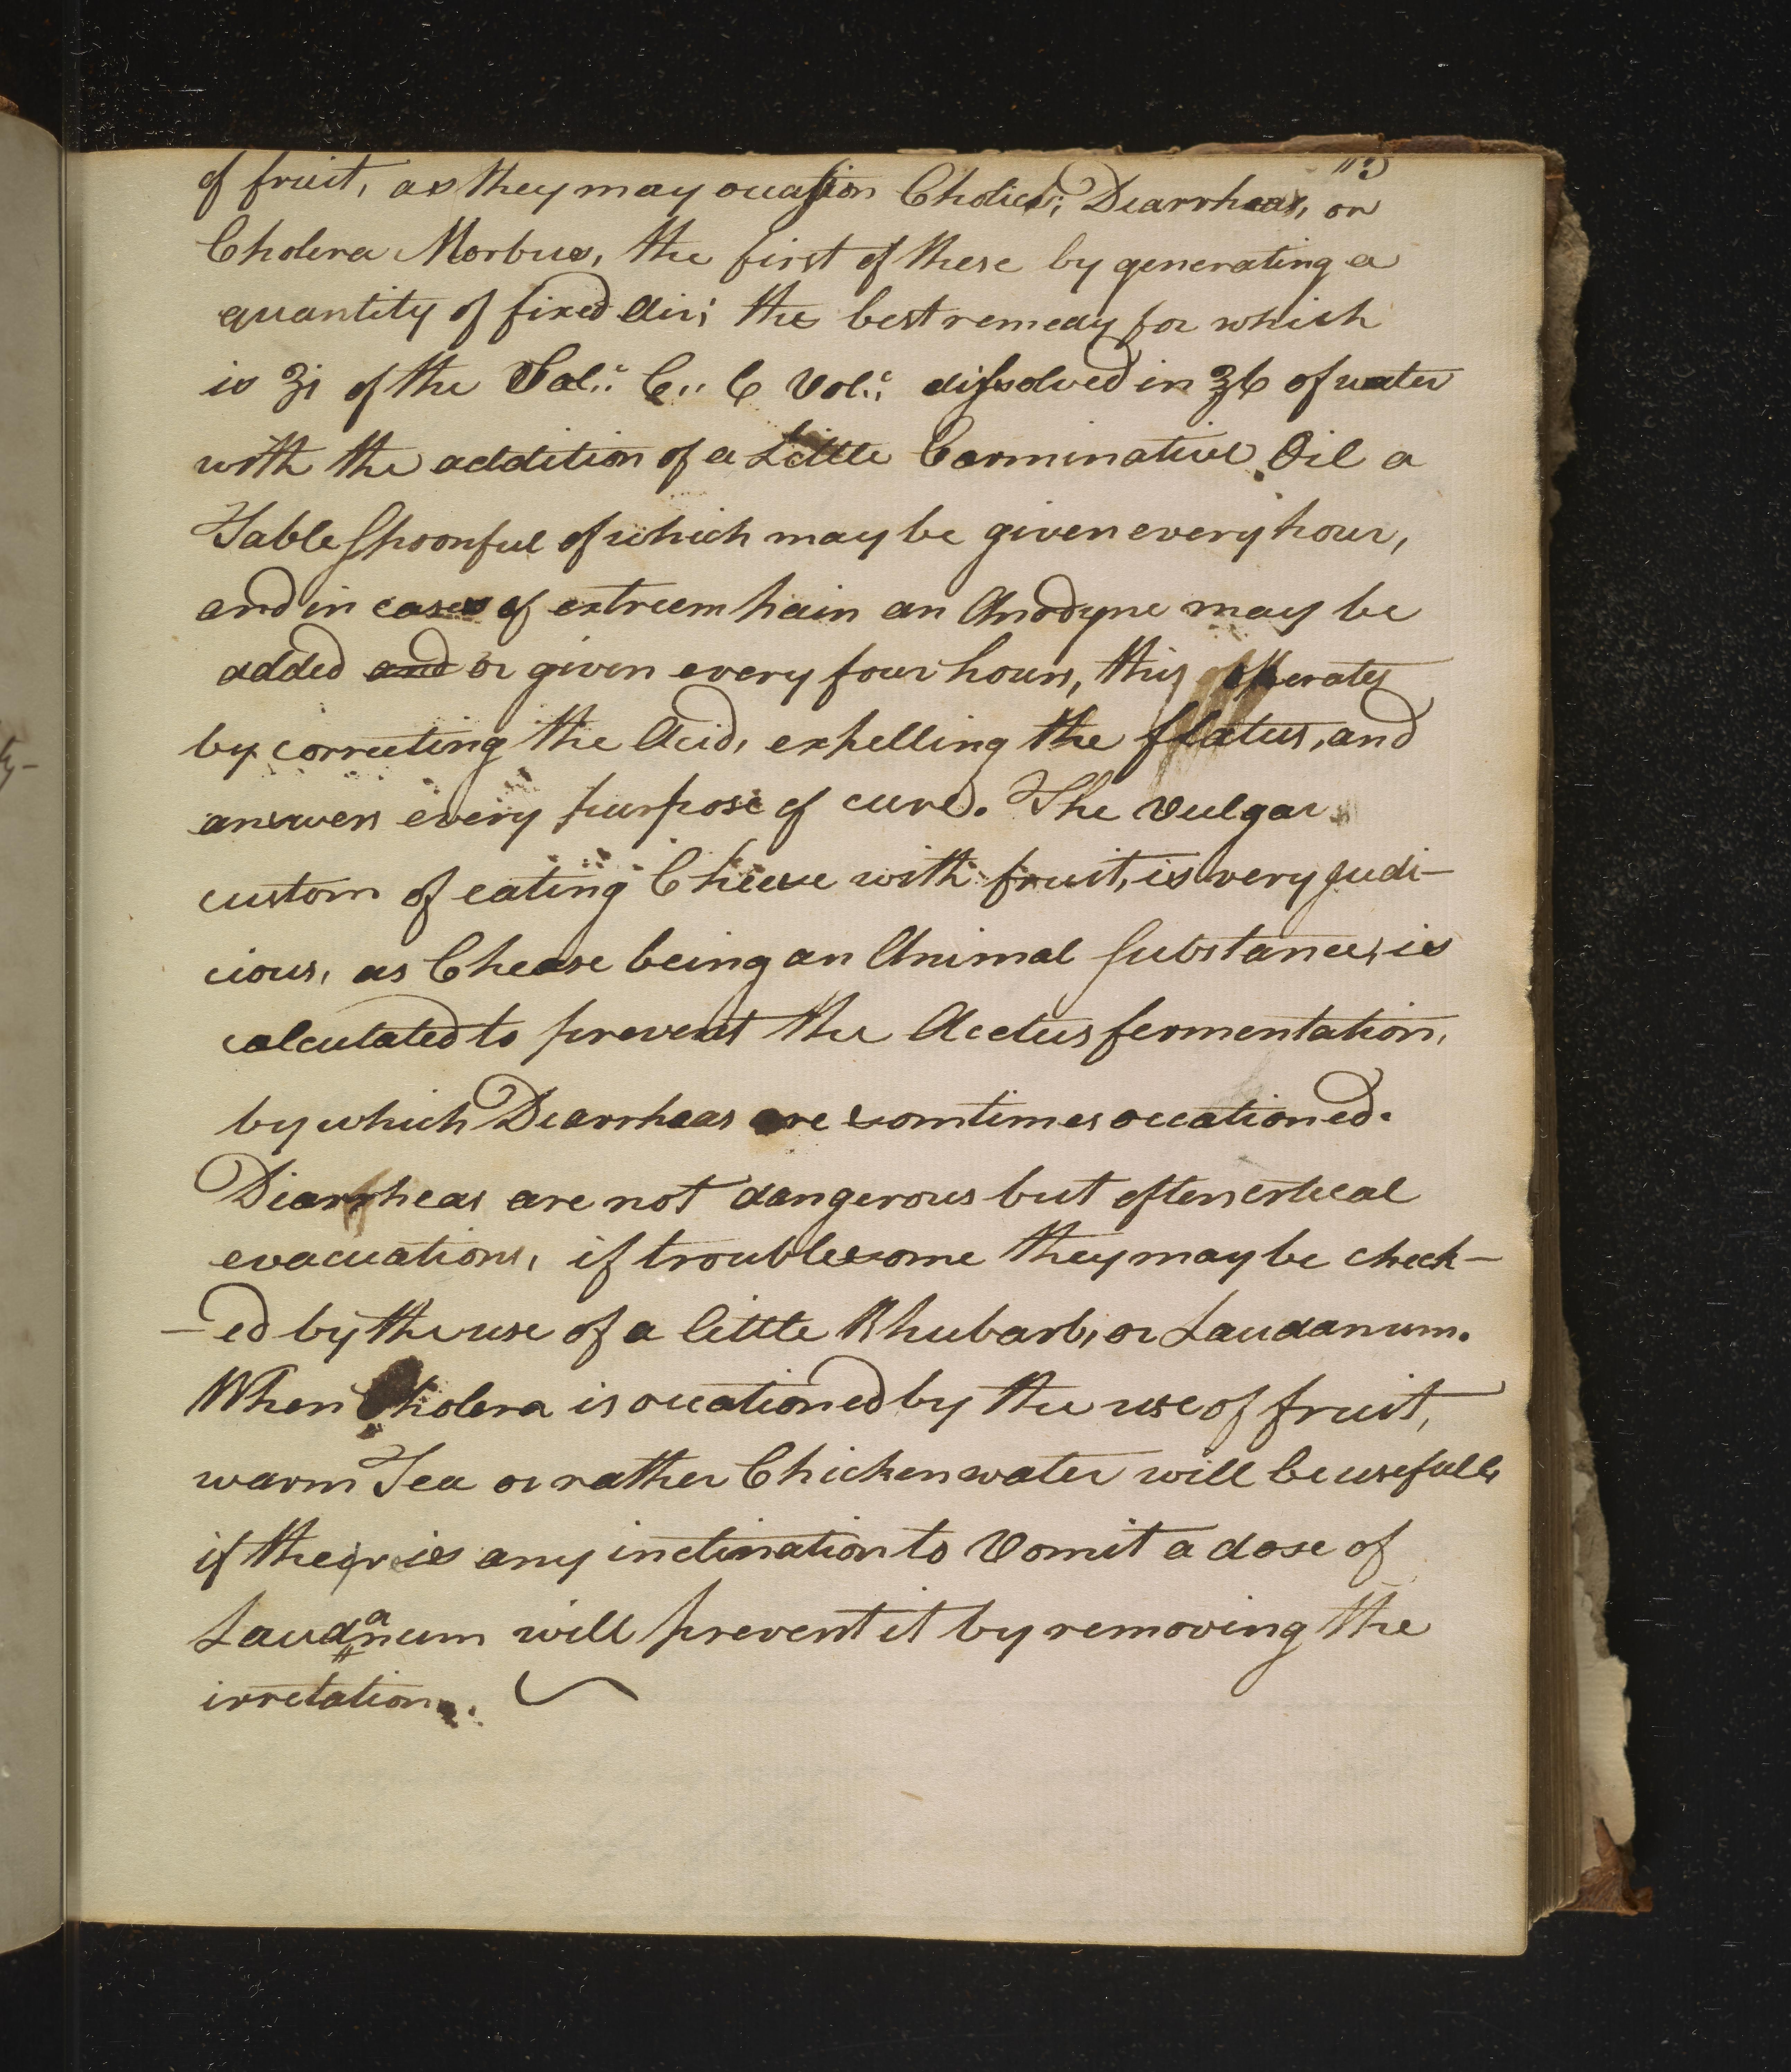 113
of fruit, as they may occasion Cholics; Diarrheas, or
Cholera Morbus, the first of these by generating a
quantity of fixed Air; the best remedy for which
is ʒi of the Sal:: C:: C Vol:: dissolved in ℥6 of water
with the addition of a Little Carminative Oil a
Table Spoonful of which may be given every hour,
and in cases of extreem pain an Anodyne may be
added and or given every four hours, this opperates
by correcting the Acid, expelling the flatus, and
answers every purpose of cure. The vulgar
custom of eating Cheese with fruit, is very judi-
cious, as Chease being an Animal Substance, is
calculated to prevent the Acetus fermentation,
by which Diarrheas are somtimes occationed.
Diarrheas are not dangerous but often critical
evacuations, if troublesome they may be check-
-ed by the use of a little Rhubarb, or Laudanum.
When Cholera is occationed by the use of fruit,
warm Tea or rather Chicken water will be usefull,
if their is any inclination to Vomit a dose of
Laudanum will prevent it by removing the
irretation.